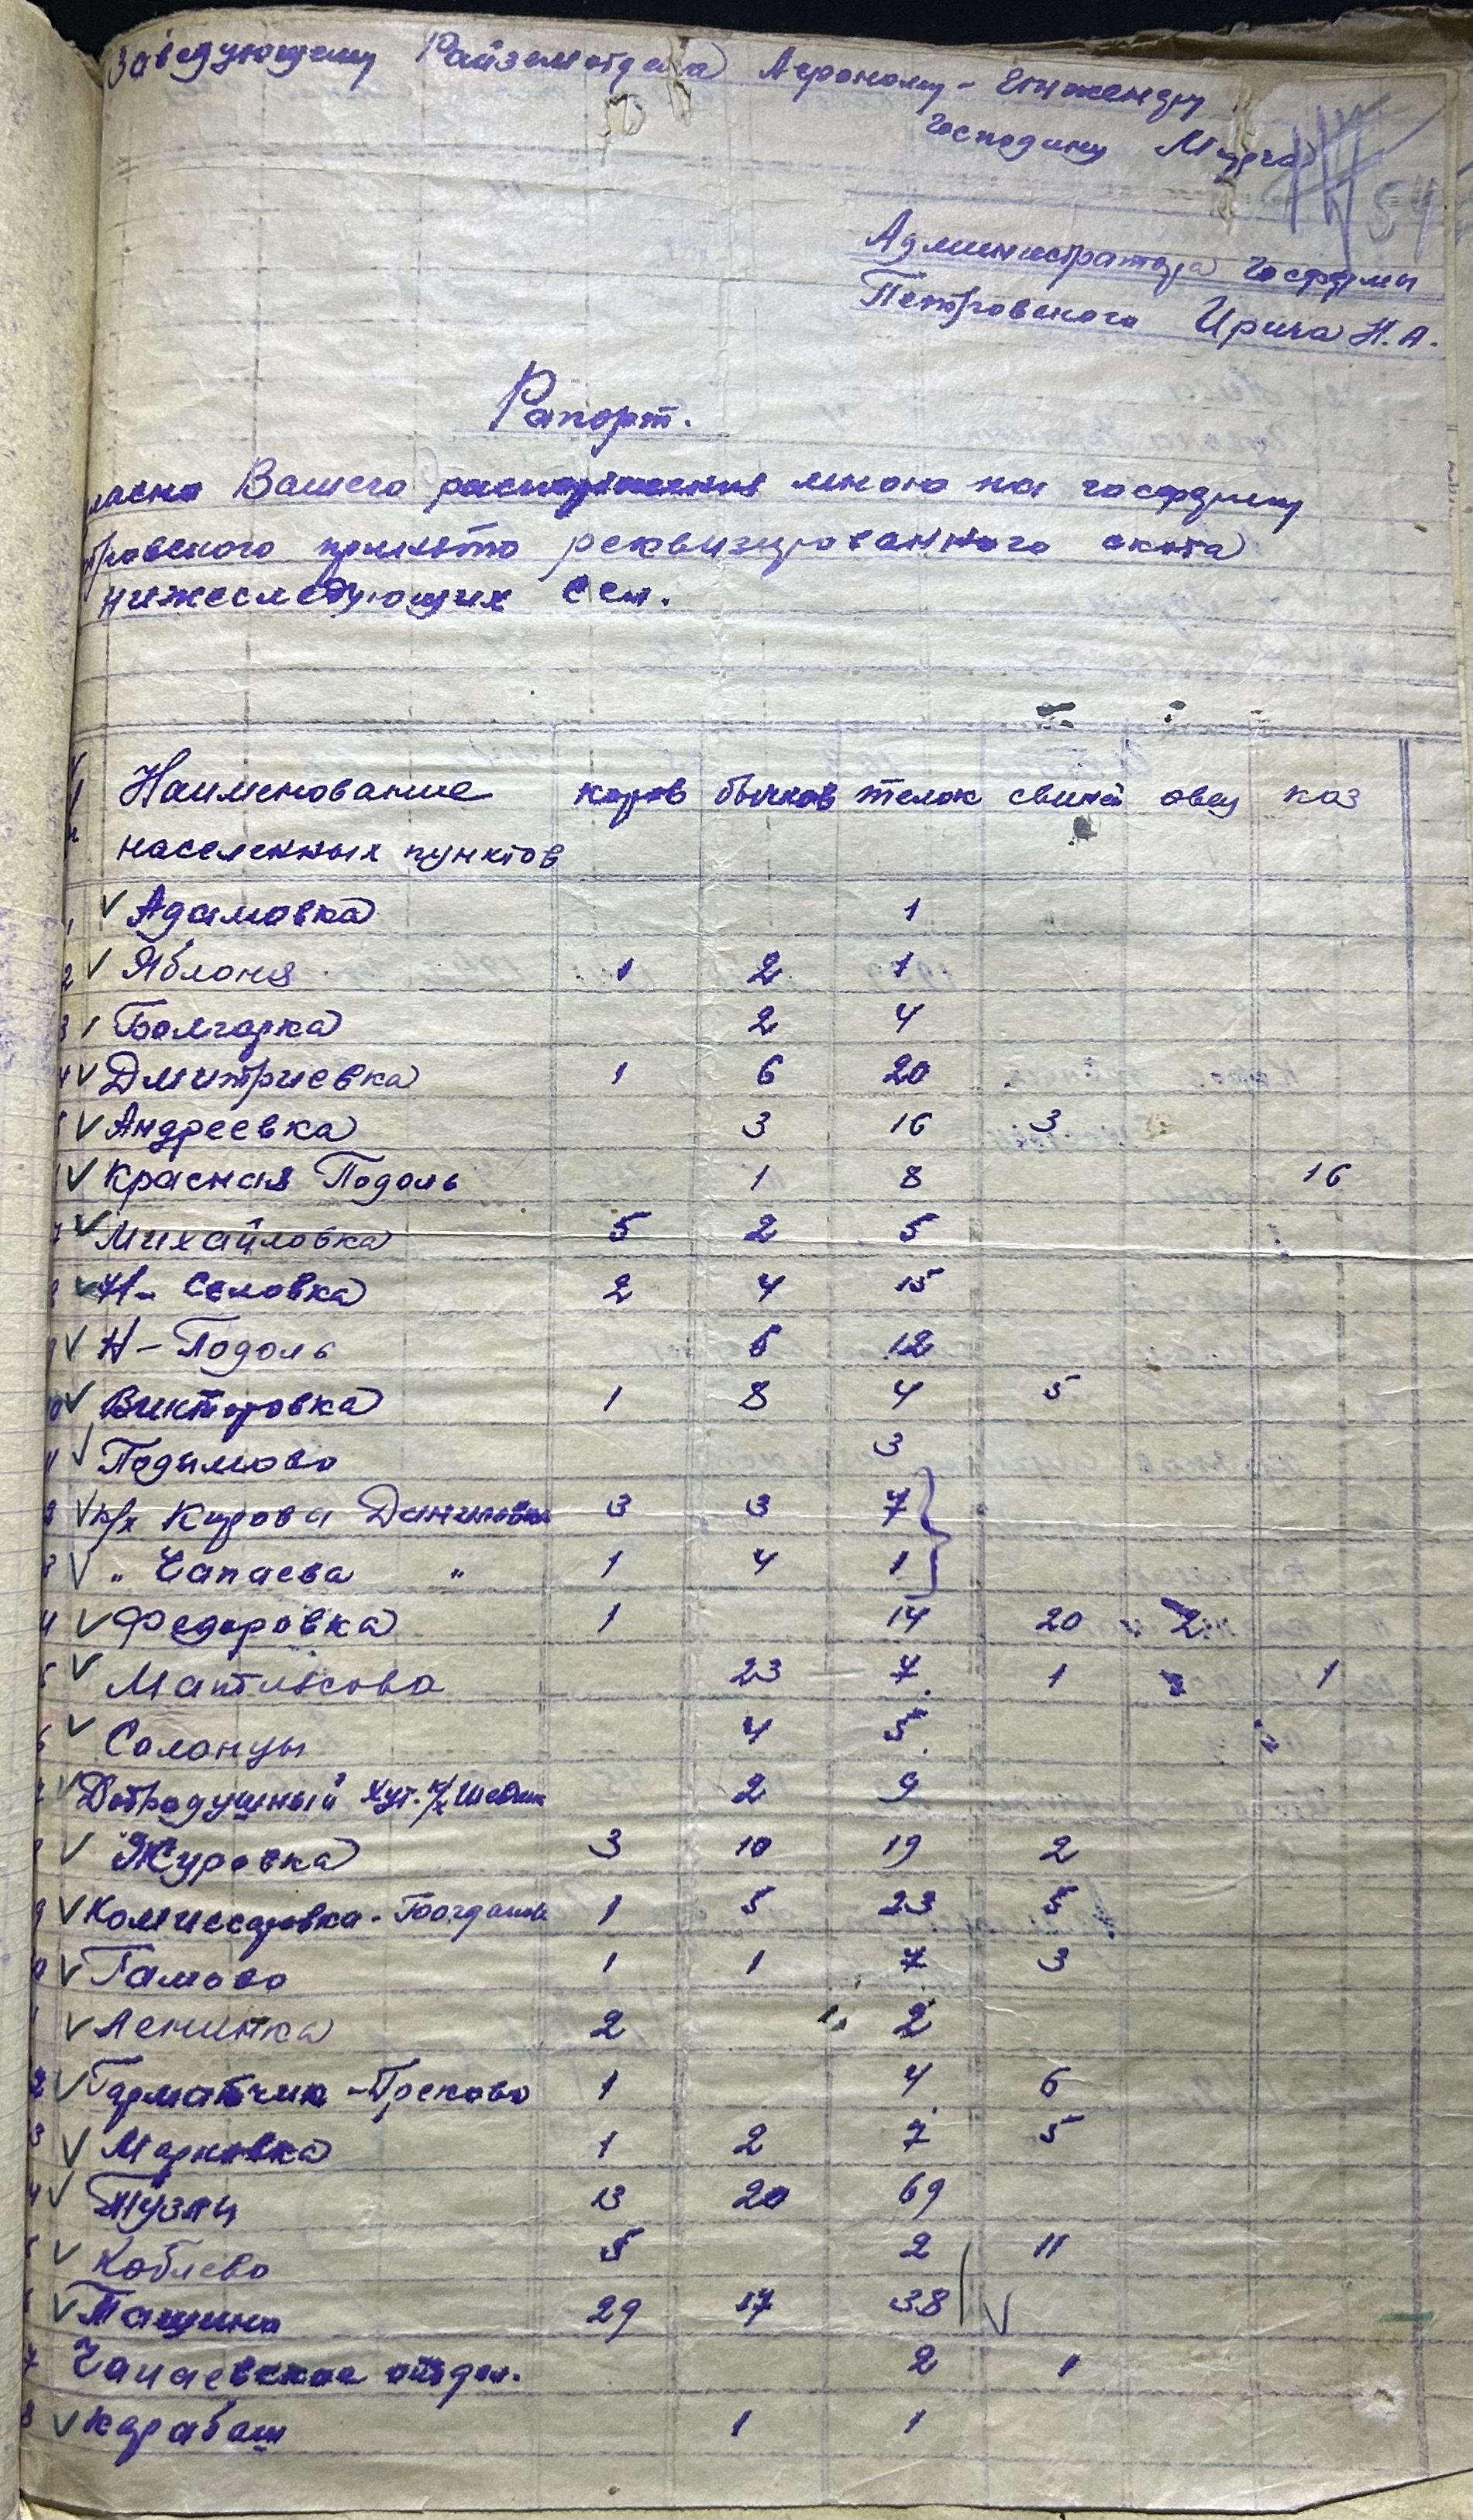 Заведующему Райземотдела Агроному-Инженеру
Господину
54
Администратора Госфермы
Петровского Ирича Н.А.
Рапорт.
гласно Вашего распоряжения мною на госферму
тровского принято реквизированного скота
нижеследующих сел.
Наименование коров бычков телок свиней овец коз
населенных пунктов
1 V Адамовка 1
2 V Яблоня 1 2 1
3 V Болгарка 2 4
4 V Дмитриевка 1 6 20
V Андреевка 3 16 3
V Красная Подоль 1 8 16
7 V Михайловка 5 2 5
8 V Н- Селовка 2 4 15
9 V Н-Подоль 6 12
0 V Викторовка 1 8 4 5
11 V Подымово 3
2 V к/х Кирова Даниловка 3 3 7
3 V " Чапаева " 1 4 1
4 V Федоровка 1 14 20 2
5 V Матьясово 23 7 1 1
6 V Солонцы 4 5
V Добродушный хут. к/х 2 9
V Журовка 3 10 19 2
9 V Комиссаровка- 1 5 23 5
0 V Гамово 1 1 7 3
1 V Ленинка 2 2
2 V -Греково 1 4 6
3 V Марковка 1 2 7 5
4 V Тузлы 13 20 69
5 V Коблево 5 2 11
6 V Ташино 29 17 38 V
7 Чапаевское отдел. 2 1
8 V Карабаш 1 1